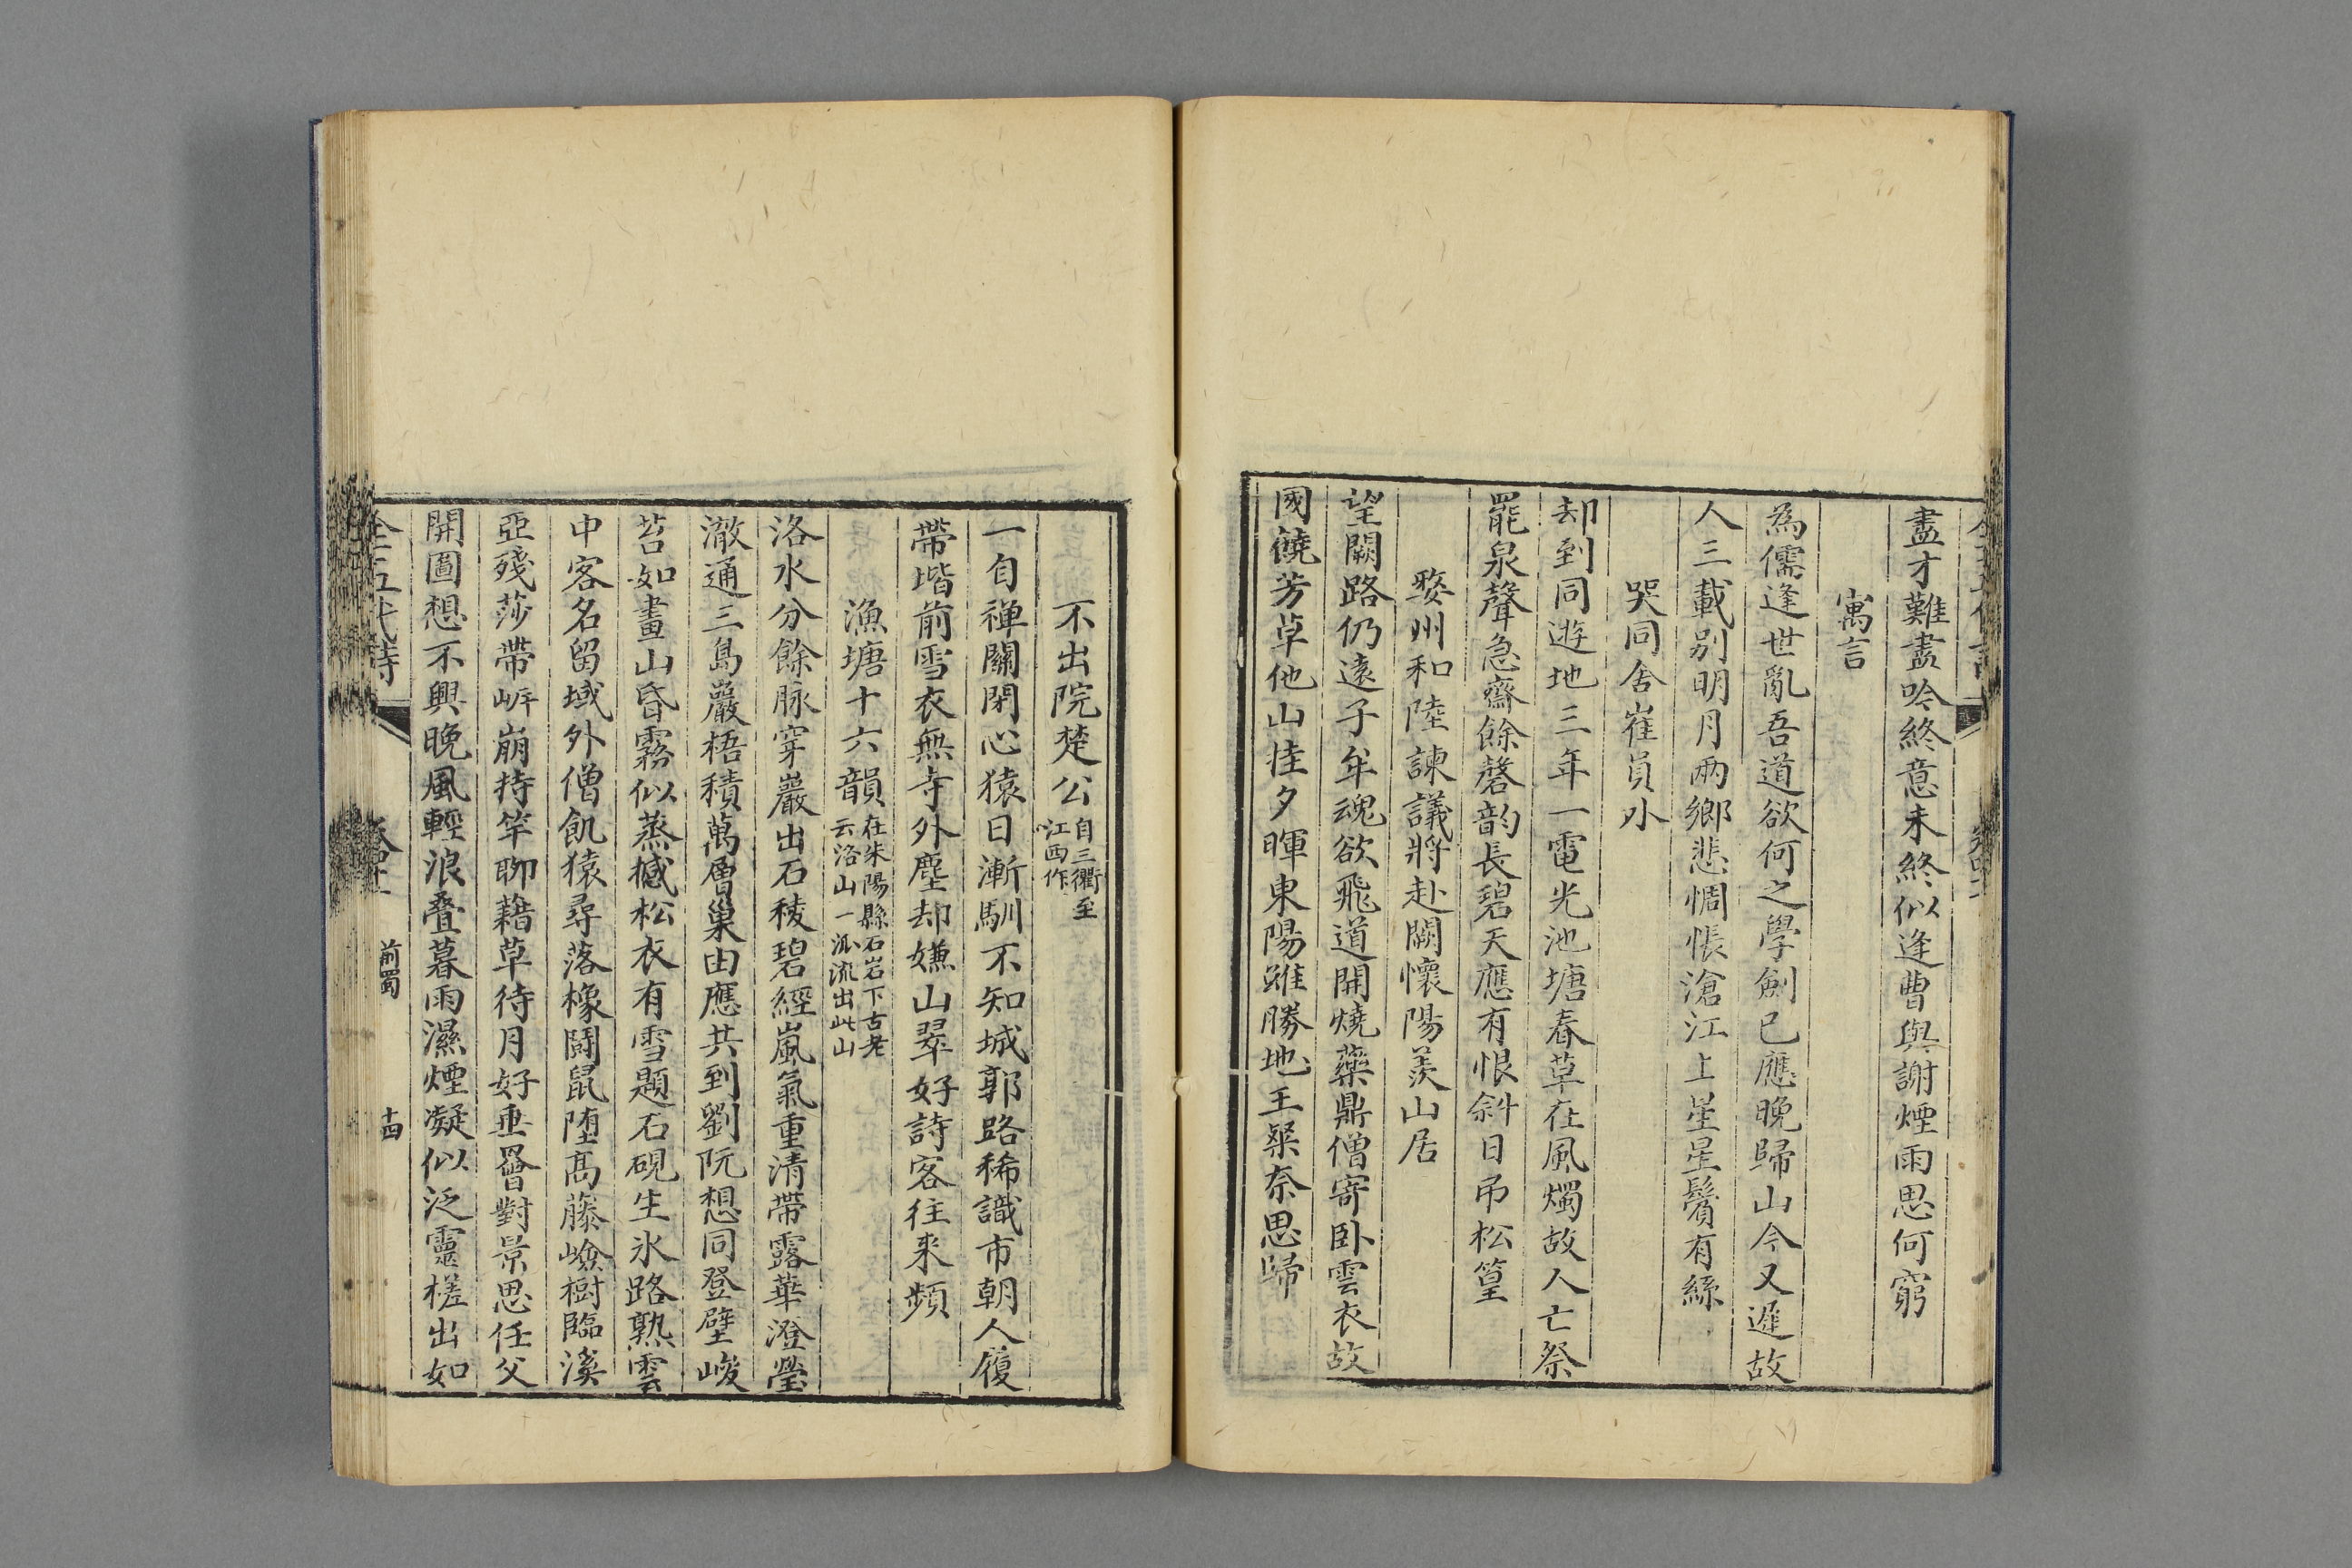 盡才難盡吟終意未終似逢曹與謝煙雨思何窮
寓言
為儒逢世亂吾道欲何之學劍已應晚歸山今又遲故
人三載别明月兩鄉悲惆悵滄江上星星鬢有絲
哭同舍崔員外
却到同遊地三年一電光池塘春草在風燭故人亡祭
罷泉聲急齋餘磬韵長碧天應有恨斜日吊松篁
婺州和陸諫議將赴闕懷陽羨山居
望闕路仍遠子牟魂欲飛道開燒藥鼎僧寄卧雲衣故
國饒芳草他山挂夕暉東陽雖勝地王粲奈思歸
不出院楚公
自三衢至
江西作
一自禅關閉心猿日漸馴不知城郭路稀識市朝人履
帶堦前雪衣無寺外塵却嫌山翠好詩客往来頻
漁塘十六韻
在朱陽縣石岩下古老
云洛山一派流出此山
洛水分餘脉穿巖出石稜碧經嵐氣重清帶露華澄瑩
澈通三島巖梧積萬層巢由應共到劉阮想同登壁峻
苔如畫山昏霧似蒸撼松衣有雪題石硯生氷路熟雲
中客名留域外僧飢猿尋落橡鬪鼠堕髙藤嶮樹臨溪
亞殘莎帶岸崩持竿聊藉草待月好垂罾對景思任父
開圖想不興晚風輕浪叠暮雨濕煙凝似泛靈槎出如
全五代詩
前蜀
十四